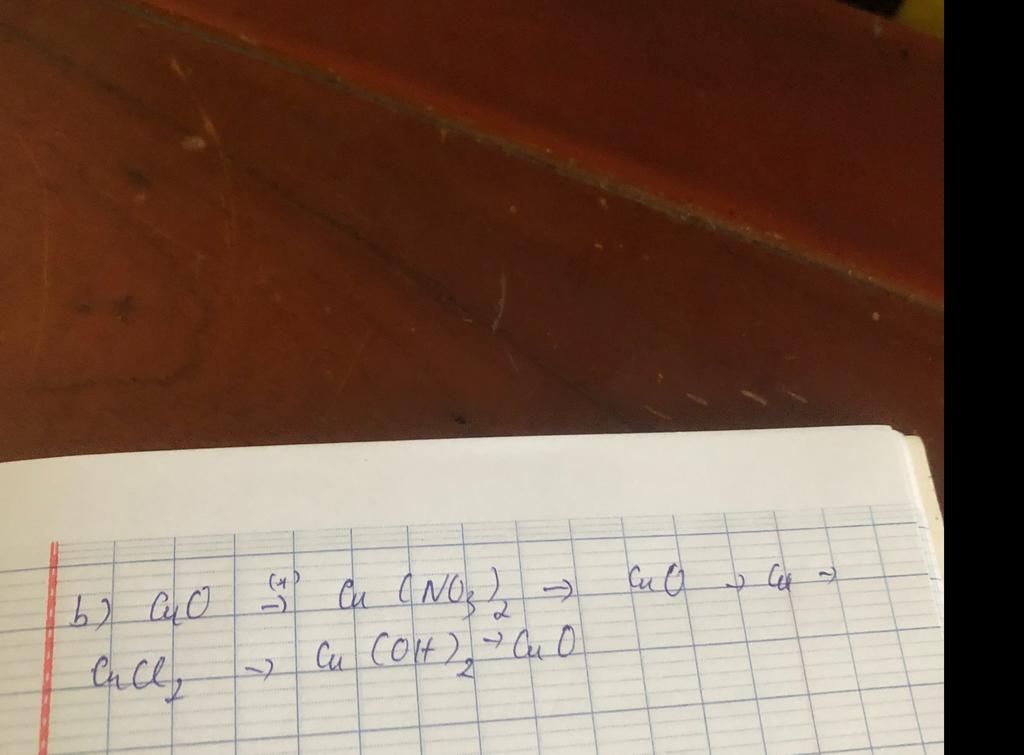 b) CuO (*)→ Cu (NO3)2 → CuO → Cu →
CuCl2 → Cu (OH)2 → CuO